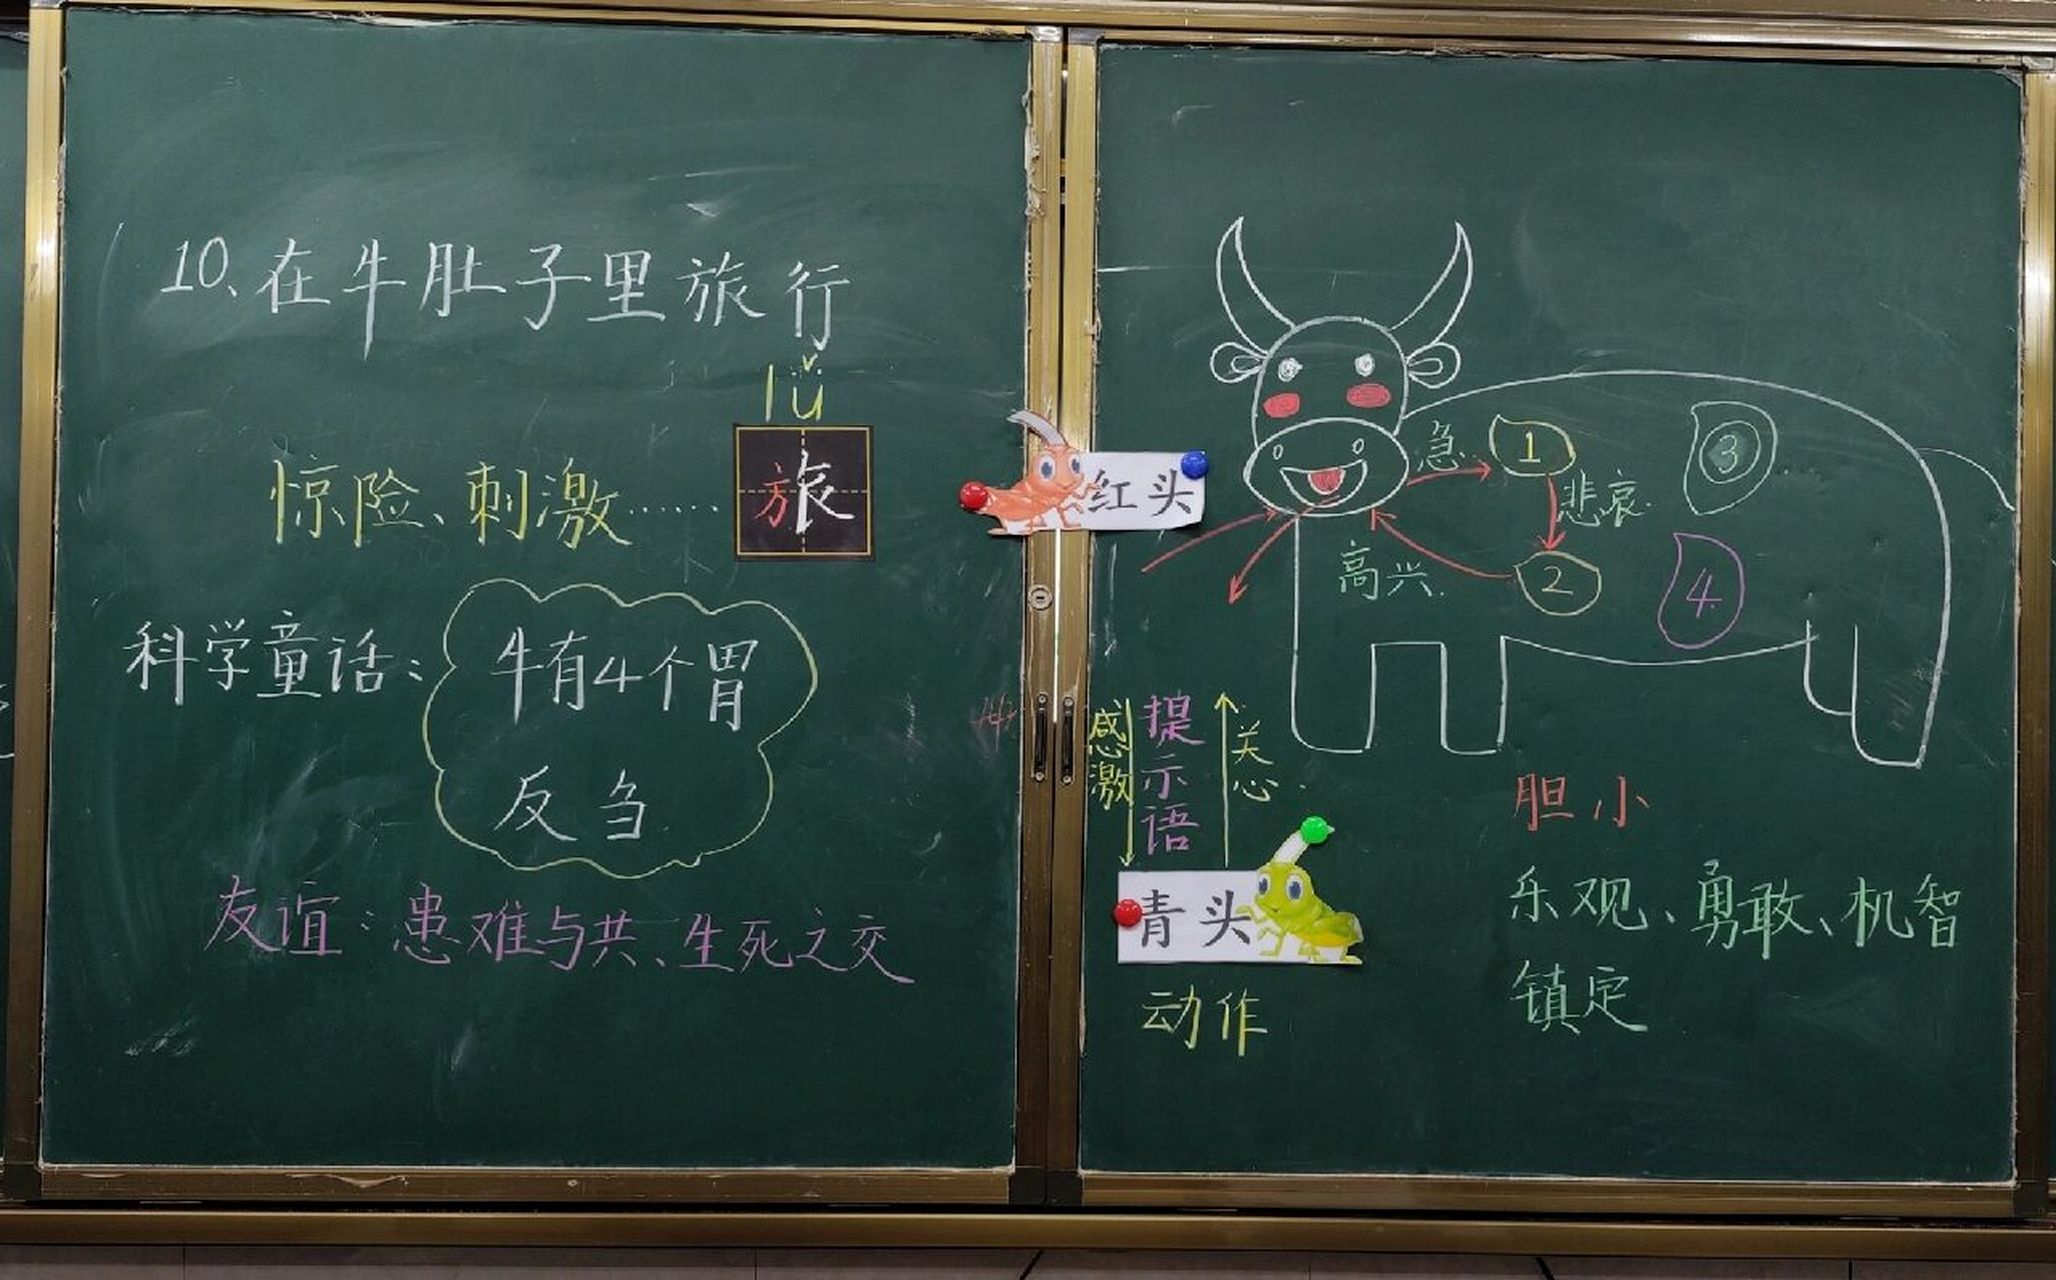 10、在牛肚子里旅行
lǚ
惊险、刺激……
旅
科学童话：
牛有4个胃
反刍
友谊：患难与共、生死之交
红头
急
1
悲哀
2
高兴
3
4
感激
提示语
关心
青头
动作
胆小
乐观、勇敢、机智
镇定